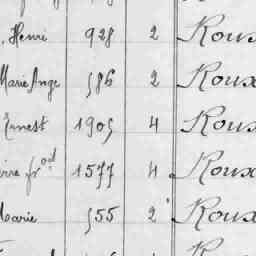 , Henri 928 2 Roux
Marie Ange 586 2 Roux
Ernest 1905 4 Roux
fr^od 1577 4 Roux
Marie 555 2 Roux